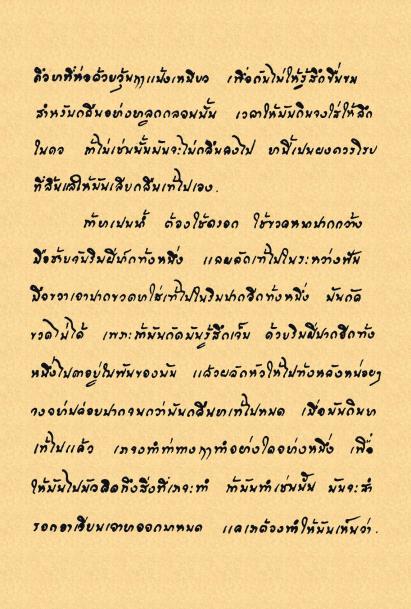 คือยาที่ห่อด้วยวุ้นๆแป้งเหนียว เพื่อกันไม่ให้รู้สึกขื่นขม
สำหรับกลืนอย่างหลุดกลอนนั้น เวลาให้มันกินจงใส่ให้ลึก
ในคอ ถ้าไม่เช่นนั้นมันจะไม่กลืนลงไป ยานี้เป็นผงควรโรย
ที่ลิ้นแลให้มันเลียกลืนเข้าไปเอง.
ถ้ายาเปนน้ำ ต้องใช้กรอก ใช้ขวดหนาปากกว้าง
มือซ้ายจับริมฝีปากทั้งหนึ่ง แลผลักเข้าไปในระหว่างฟัน
มือขวาเอาปากขวดยาใส่เข้าไปในริมปากอีกทั้งหนึ่ง มันกัด
ขวดไม่ได้ เพราะถ้ามันกัดมันรู้สึกเจ็บ ด้วยริมฝีปากอีกทั้ง
หนึ่งไปคาอยู่ในฟันของมัน แล้วผลักหัวให้ไปทั้งหลังหน่อยๆ
จงอย่าปล่อยปากจนกว่ามันกลืนยาเข้าไปหมด เมื่อมันกินยา
เข้าไปแล้ว เราจงทำท่าทางๆทำอย่างใดอย่างหนึ่ง เพื่อ
ให้มันไปมัวคิดถึงสิ่งที่เราจะทำ ถ้ามันทำเช่นนั้น มันจะสำ
รอกอาเจียนเอายาออกมาหมด แลเราต้องทำให้มันเห็นว่า.